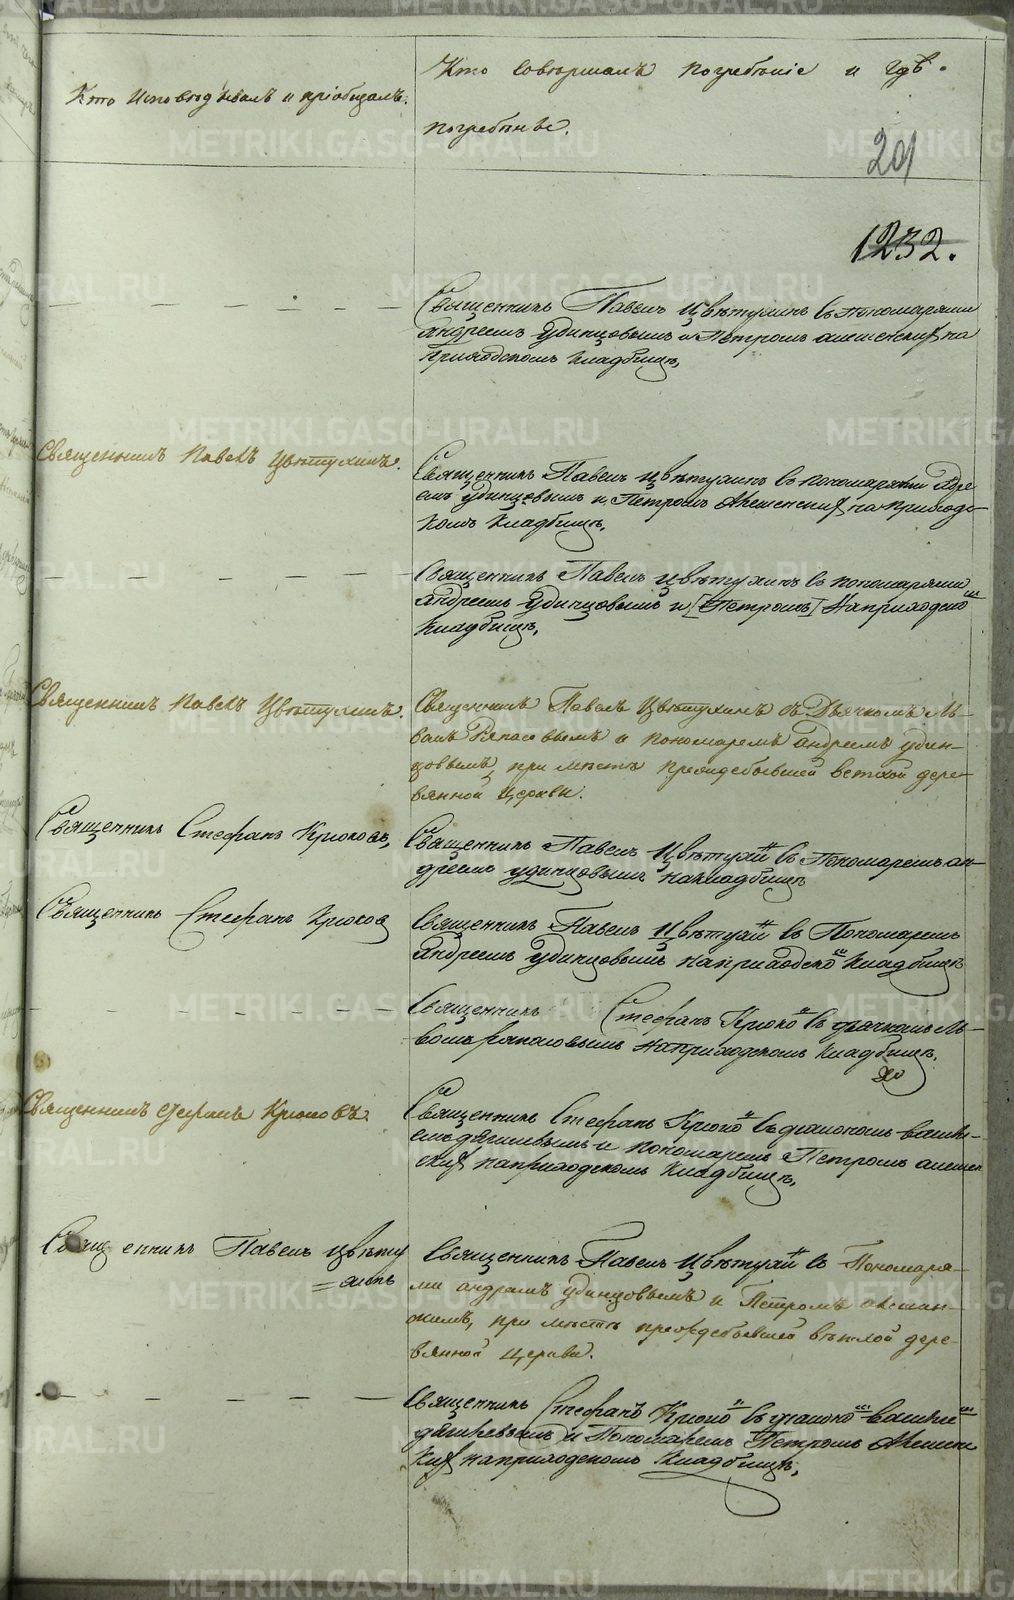 METRIKI.GASO-URAL.RU
Кто Исповѣдывалъ и пріобщалъ.
Кто совѣршалъ погребѣніе и гдѣ
погребѣны.
201
1232.
Священникъ Павелъ Цвѣтухинъ съ пономарями
андреемъ Удинцовымъ и Петромъ на
приходскомъ кладбищѣ,
Священникъ Павелъ Цвѣтухинъ.
Священникъ Павелъ Цвѣтухинъ съ пономарями Андре
емъ Удинцовымъ и Петромъ на приходс-
комъ кладбищѣ,
Священникъ Павелъ Цвѣтухинъ съ пономарями
андреемъ Удинцовымъ и [Петромъ] на приходско
кладбищѣ,
Священникъ Павелъ Цвѣтухинъ.
Священникъ Павелъ Цвѣтухинъ съ Дьячкомъ Ль-
вомъ и пономаремъ андреемъ удин-
цовымъ, при мѣстѣ прежде бывшей ветхой дере-
вянной церкви.
Священникъ Стефанъ Крюковъ,
Священникъ Павелъ Цвѣтухи съ Пономаремъ ан-
дреемъ удинцовымъ на кладбищѣ
Священникъ Стефанъ Крюков
Священникъ Павелъ Цвѣтухи съ Пономаремъ
андреемъ Удинцовымъ на приходско кладбищѣ
Священникъ Стефанъ Крюко съ дьячкомъ Ль-
вомъ на приходскомъ кладбищѣ.
Священникъ Стефанъ Крюковъ.
Священникъ Стефанъ Крюко съ диакономъ
и пономаремъ Петромъ
на приходскомъ кладбищѣ,
Священникъ Павелъ Цвѣту
=хинъ
Священникъ Павелъ Цвѣтухи съ Пономаря-
ми андреемъ Удинцовымъ и Петромъ
при мѣстѣ прежде бывшей ветхой дере-
вянной церкви.
Священникъ Стефанъ Крюко съ диако
и Пономаремъ Петромъ
на приходскомъ кладбищѣ,